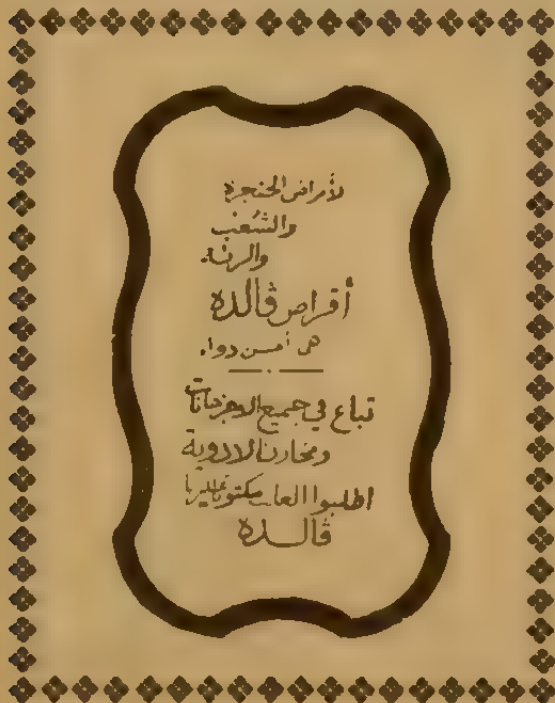 لأمراض الحنجرة
والشُعب
والرئة
أقراص ڤالدة
هى أحسن دواء
تباع في جميع الاجزخانات
ومخازن الادوية
اطلبوا العلب مكتوبا عليها
ڤالدة